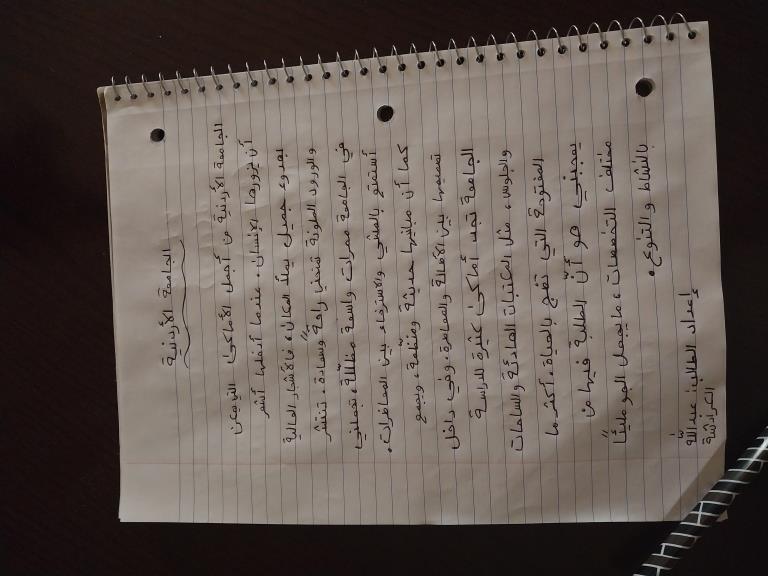 الجامعة الأردنية
الجامعة الأردنية من أجمل الأماكن التي يمكن
أن يزورها الإنسان. عندما أدخلها أشعر
بهدوء جميل يملأ المكان، فالأشجار العالية
والورود الملونة تمنحني راحة وسعادة. تنتشر
في الجامعة ممرات واسعة مظللة، تجعلني
أستمتع بالمشي والاسترخاء بين المحاضرات.
كما أن مبانيها حديثة ومنظمة، ويجمع
تصميمها بين الأصالة والمعاصرة. وفي داخل
الجامعة تجد أماكن كثيرة للدراسة
والجلوس، مثل المكتبات الهادئة والساحات
المفتوحة التي تضج بالحياة. أكثر ما
يعجبني هو أنّ الطلبة فيها من
مختلف التخصصات، ما يجعل الجو مليئًا
بالنشاط والتنوع.
إعداد الطالب: عبدالله